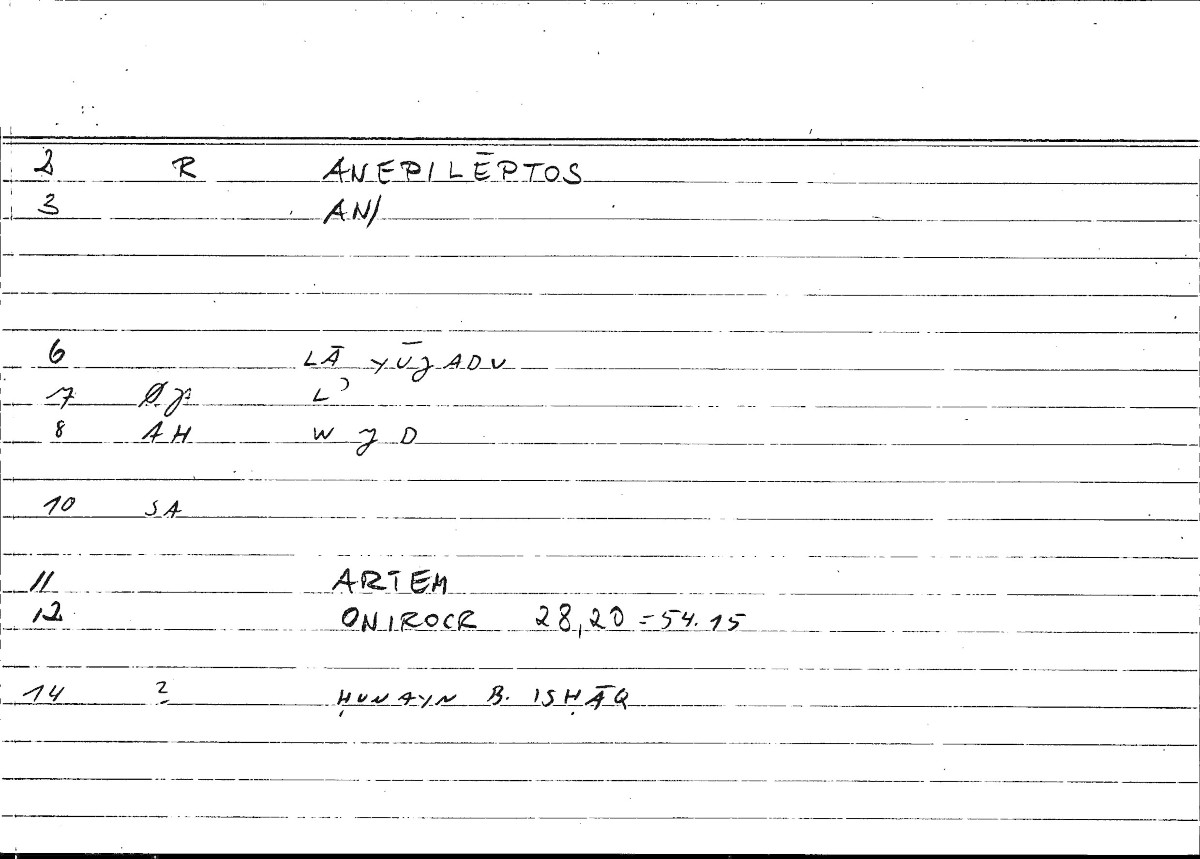 2 R ANEPILĒPTOS
3 AN/
6 LĀ YŪJADU
7 L ʾ
8 AH W J D
10 SA
11 ARTEM
12 ONIROCR 28,20 = 54.15
14 ? ḤUNAYN B. ISḤĀQ